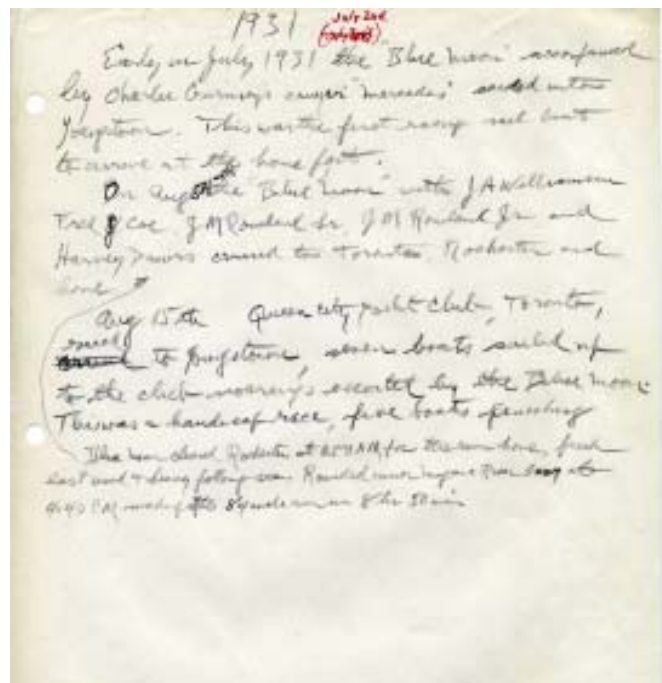 1931 July 2nd
Early in July 1931 the "Blue Moon" accompanied
by Charlie Gurneys "Mercedes" sailed into
Youngstown. This was the first racing sail boat
to arrive at the home port.
On Aug the "Blue Moon" with J A Williamson
Fred J Coe J M Rowland Sr. J M Rowland Jr and
Harvey cruised to Toronto, Rochester and
home
Aug 15th Queen City Yacht Club, Toronto,
raced
to Youngstown, seven boats sailed up
to the club moorings escorted by the Blue Moon.
This was a handicap race, five boats finishing
Blue Moon cleared Rochester at AM for the run home, fresh
east wind + heavy following sea. Rounded river buoy at
4:40 PM making the 84 mile run in 8 hr 50 min